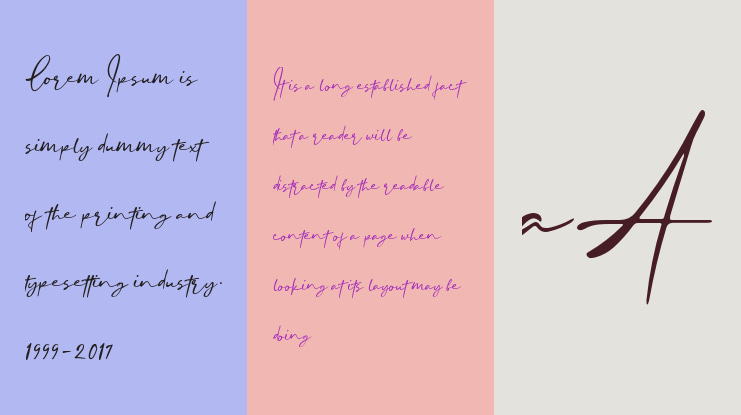 Lorem Ipsum is
simply dummy text
of the printing and
typesetting industry.
1999-2017
It is a long established fact
that a reader will be
distracted by the readable
content of a page when
looking at its layout may be
doing
~A